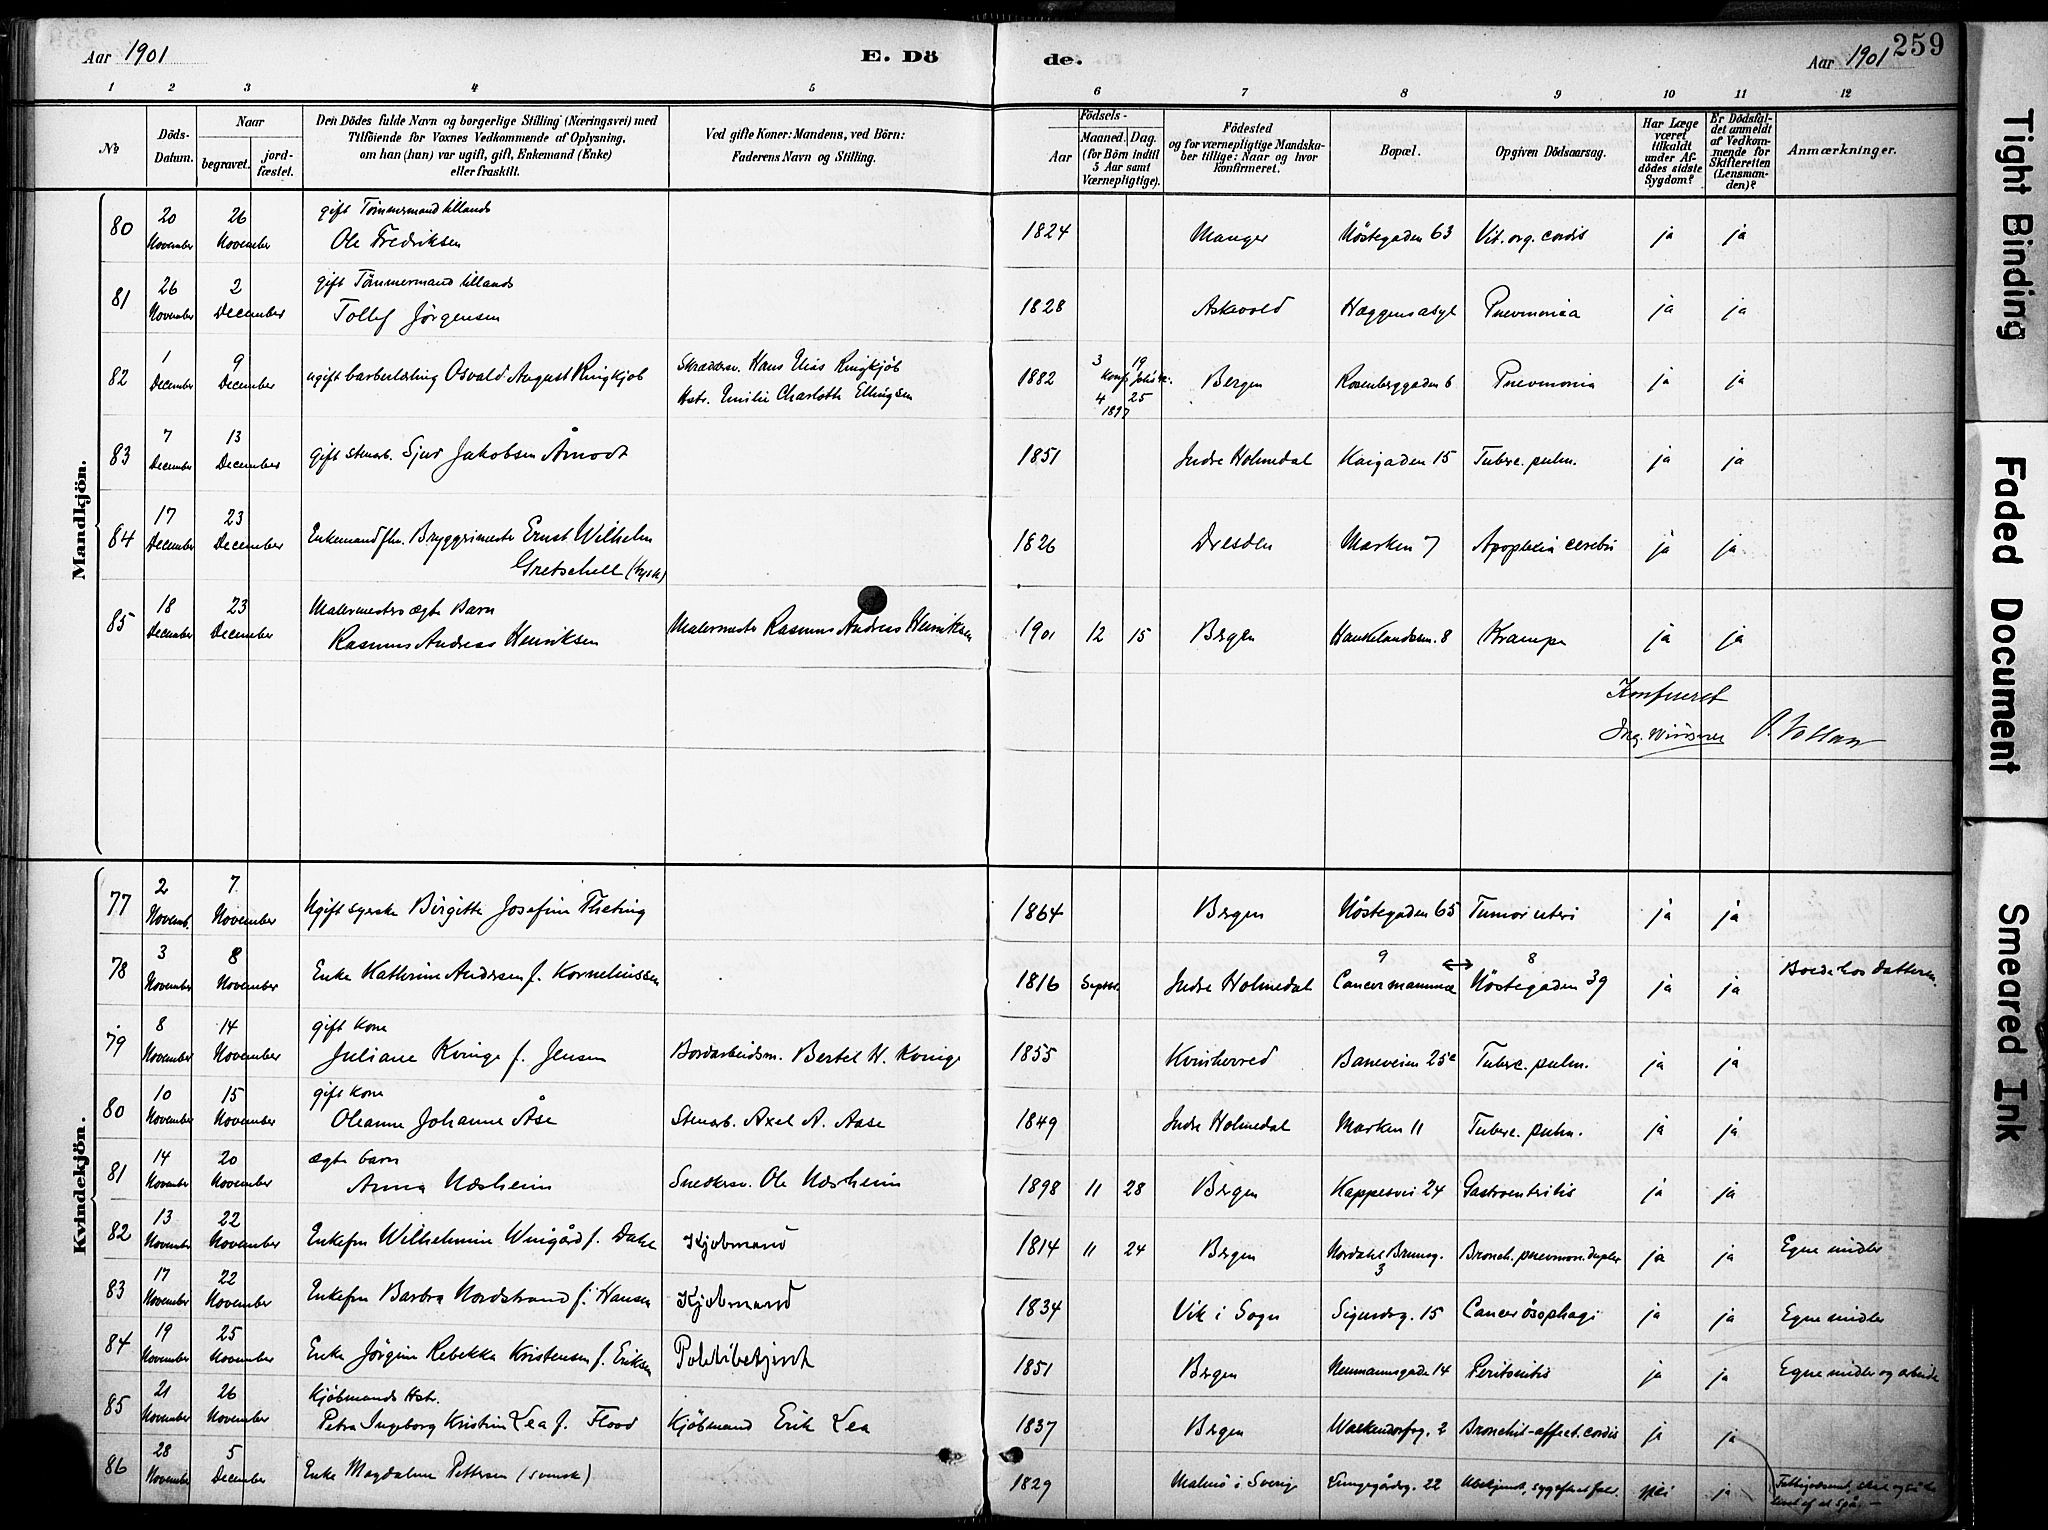 Aar 1901
E. Dö
de.
Aar 1901
259
1 2 3 4 5 6 7 8 9 10 11 12
№
Döds-
Datum.
Naar
begravet.
jord-
fæstet.
Den Dödes fulde Navn og borgerlige Stilling (Næringsvei) med
Tilföiende for Voxnes Vedkommende af Oplysning,
om han (hun) var ugift, gift, Enkemand (Enke)
eller fraskilt.
Ved gifte Koner: Mandens, ved Börn:
Faderens Navn og Stilling.
Födsels-
Aar
Maaned.
Dag.
(for Börn indtil
5 Aar samt
Værnepligtige).
Födested
og for værnepligtige Mandska-
ber tillige: Naar og hvor
konfirmeret.
Bopæl.
Opgiven Dödsaarsag.
Har Læge
været
tilkaldt
under Af-
dödes sidste
Sygdom?
Er Dödsfal-
det anmeldt
af Vedkom-
mende for
Skifteretten
(Lensman-
den)?
Anmærkninger.
Mandkjön.
80 20 November 26 November gift Tømmermand tillands
Ole Fredriksen 1824 Manger Nöstegaden 63 Vit. org. cordis ja ja
81 26 November 2 December gift Tömmermand tillands
Tollef Jørgensen 1828 Askevold Haggens asyl Pneumonia ja ja
82 1 December 9 December ugift barberlærling Osvald August Ringkjøb Skræddersv. Hans Elias Ringkjøb
Hstr. Emilie Charlotte Ellingsen 1882 3 19 Konf. Johs k. 4 25 1897 Bergen Rosenberggaden 6 Pneumonia ja ja
83 7 December 13 December gift stenarb. Sjur Jakobsen Åmodt 1851 Indre Holmedal Kaigaden 15 Tuberc. pulm. ja ja
84 17 December 23 December Enkemand fhv. Bryggrimester Ernst Wilhelm
Gretschell (tysk) 1826 Dresden Marken 7 Apoplexia cerebri ja ja
85 18 December 23 December Malermesters ægte Barn
Rasmus Andreas Henriksen Malermester Rasmus Andreas Henriksen 1901 12 15 Bergen Haukelandsm. 8 Krampe ja ja
Konfereret
Kvindekjön.
77 2 Novemb. 7 November Ugift syerske Birgitte Josefine Theting 1864 Bergen Nöstegaden 65 Tumor uteri ja ja
78 3 November 8 November Enke Kathrine Andersen f. Korneliussen 1816 Septbr. Indre Holmedal 9 Cancer mammæ ↔ 8 Nöstegaden 39 ja ja Boede hos datteren.
79 8 November 14 November gift Kone
Juliane Kvinge f. Jensen Bordarbeidsm. Bertel H. Kvinge 1855 Kvinherred Baneveien 25a Tuberc. pulm. ja ja
80 10 November 15 November gift Kone
Oleanne Johanne Åse Stenarb. Axel A. Aase 1849 Indre Holmedal Marken 11 Tuberc. pulm. ja ja
81 14 November 20 November ægte barn
Anna Næsheim Snedkersv. Ole Næsheim 1898 11 28 Bergen Kappesvei 24 Gastroenteritis ja ja
82 13 November 22 November Enkefru Wilhelmine Wingård f. Dahl Kjøbmand 1814 11 24 Bergen Nordahl Brunsg. 3 Bronch. pneumon. duplex ja ja Egne midler
83 17 November 22 November Enkefru Barbra Nordstrand f. Hansen Kjøbmand 1834 Vik i Sogn Sigurdsg. 15 Cancer ösophagi ja ja Egne midler
84 19 November 25 November Enke Jørgine Rebekka Kristensen f. Eriksen Politibetjent 1851 Bergen Neumannsgade 14 Peritonitis ja ja Egne midler og arbeide
85 21 November 26 November Kjöbmands Hstr.
Petra Ingeborg Kristine Lea f. Flood Kjöbmand Erik Lea 1837 Bergen Walkendorfsg. 2 Bronchit-affect. cordis ja ja
86 28 November 5 December Enke Magdalene Pettersen (svensk) 1829 Malmö i Sverige Lungegårdsg. 22 Ubekjendt, nei ja
Tight Binding
Faded Document
Smeared Ink